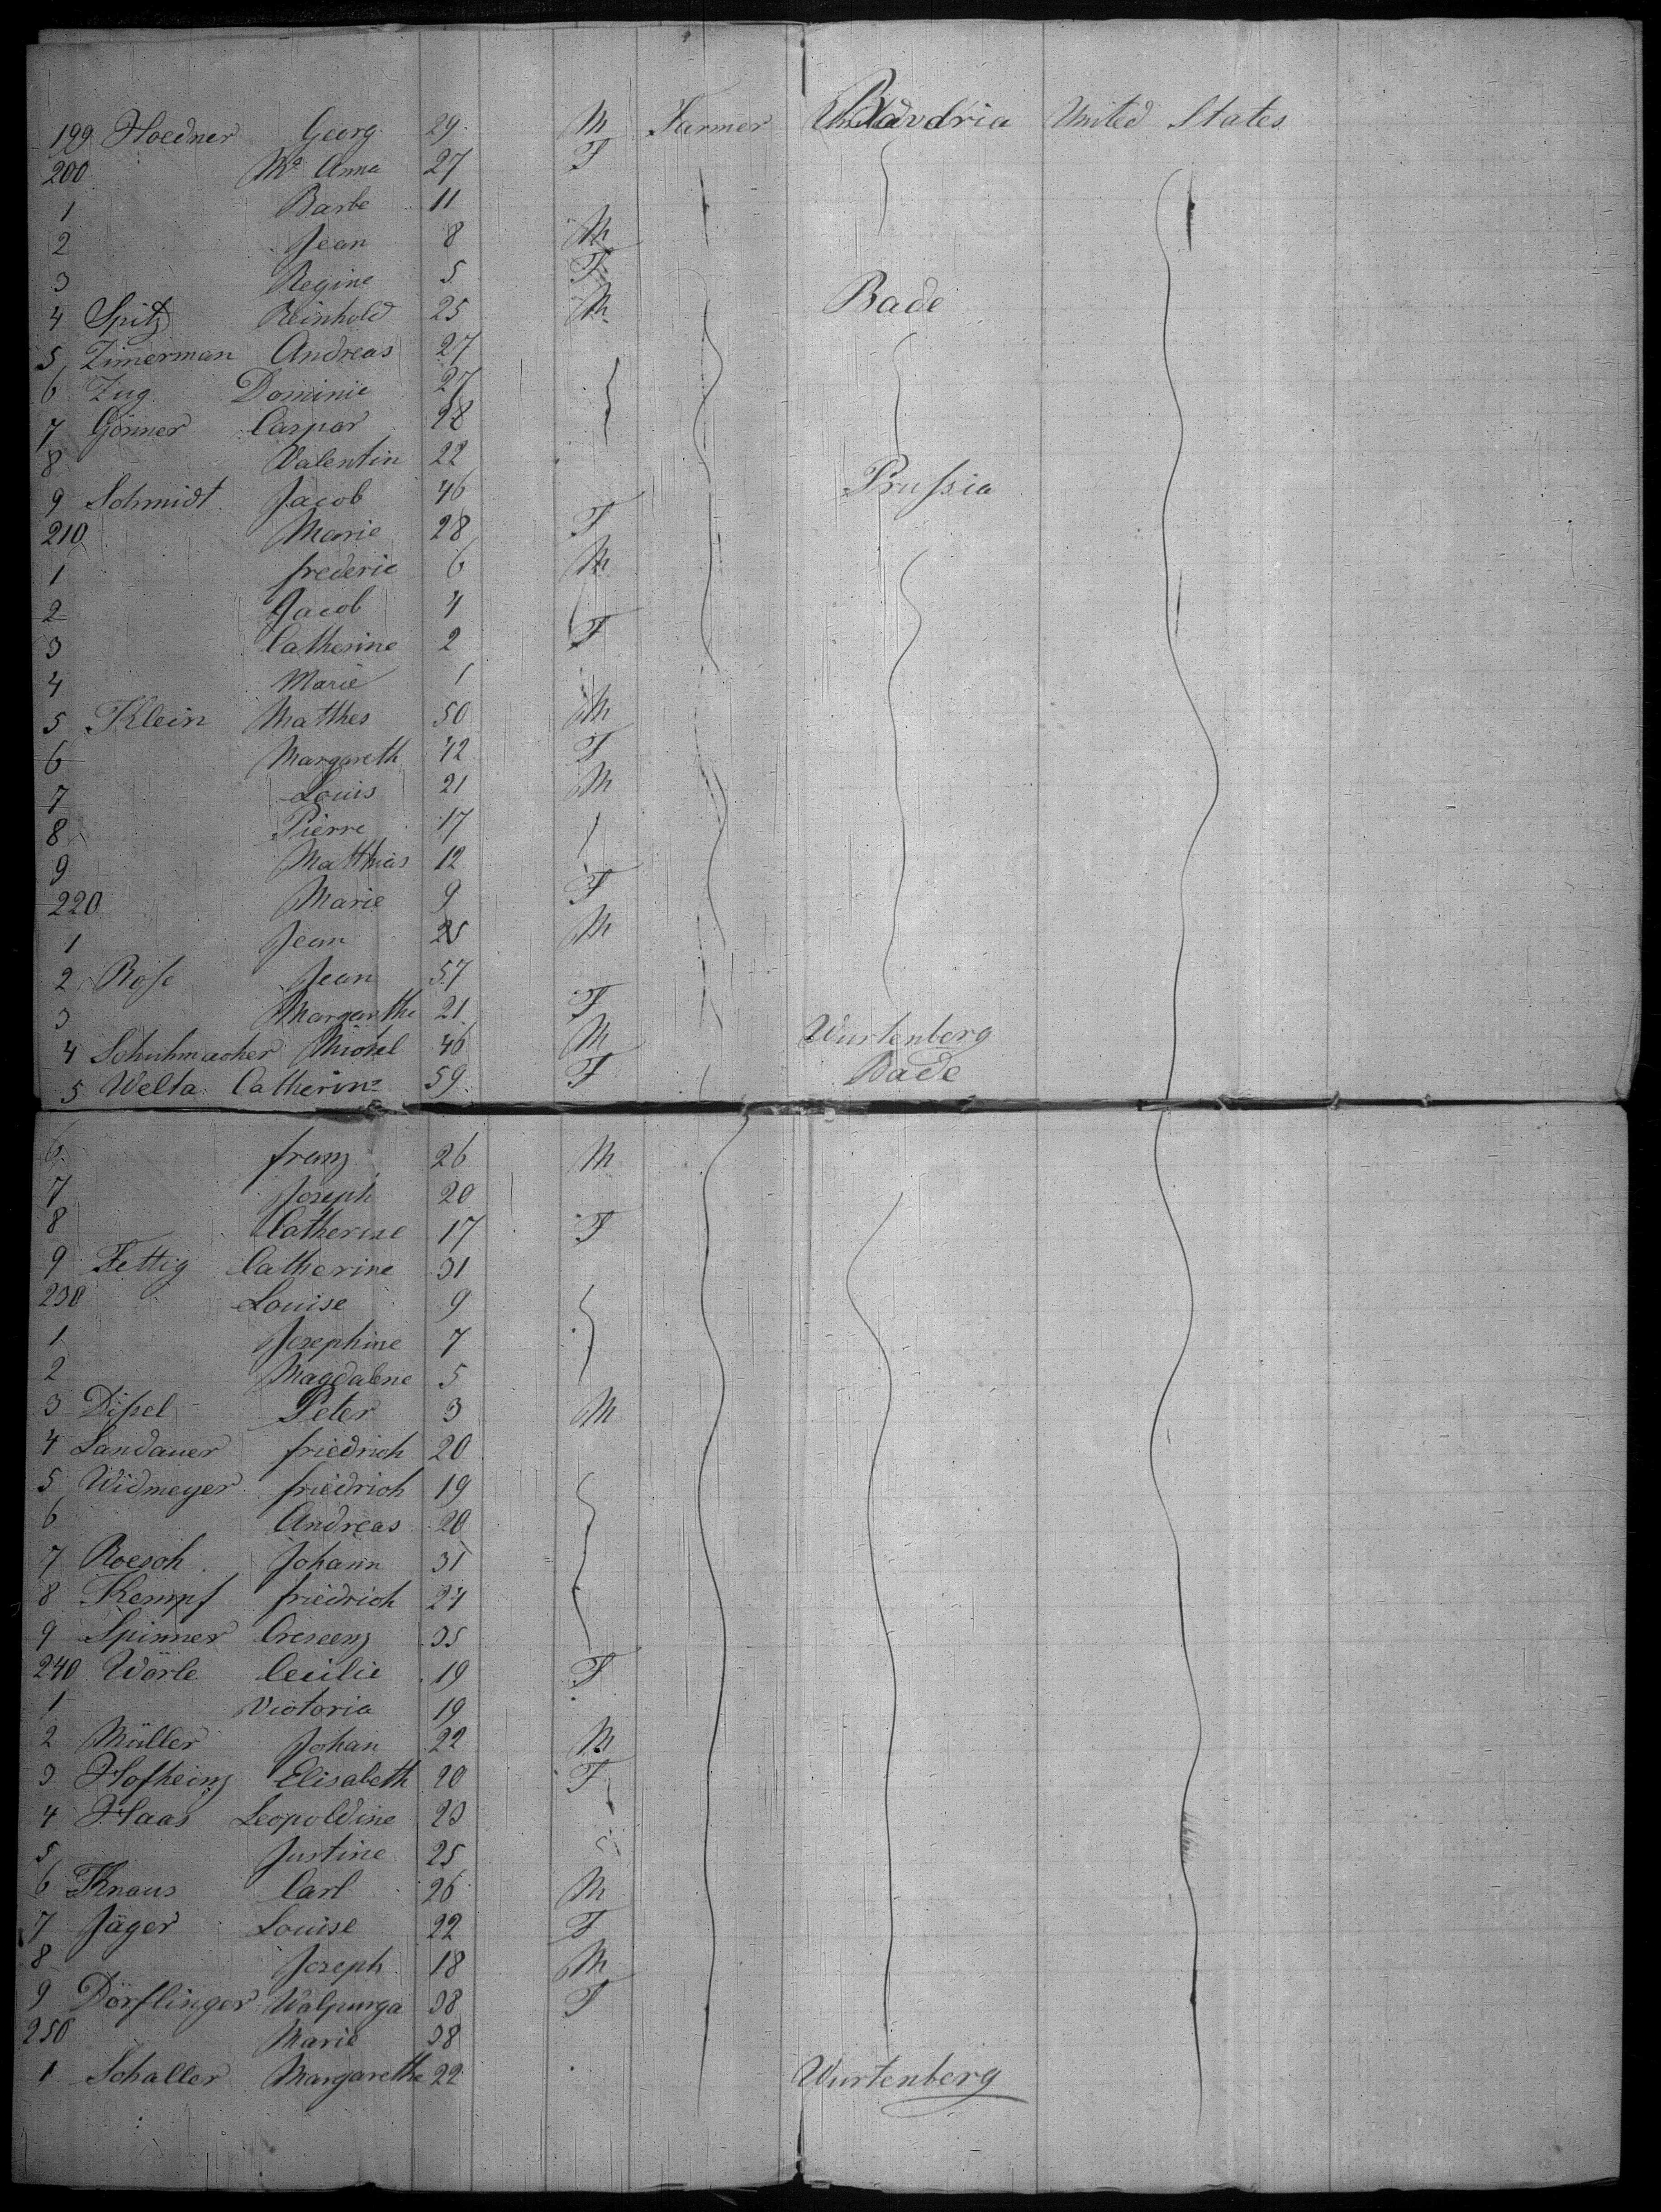 199 Hoedner Georg 29 M Farmer Bavaria United States
200 Ma Anna 27 F
1 Barbe 11
2 Jean 8 M
3 Regine 5 F
4 Spitz Reinhold 25 M Bade
5 Zimerman Andreas 27
6 Zug Dominic 27
7 Gönner Caspar 28
8 Valentin 22
9 Schmidt Jacob 46 Prussia
210 Marie 28 F
1 frederic 6 M
2 Jacob 4
3 Catherine 2 F
4 Marie 1
5 Klein Matthes 50 M
6 Margareth 42 F
7 Louis 21 M
8 Pierre 17
9 Matthias 12
220 Marie 9 F
1 Jean 25 M
2 Rose Jean 57
3 Margarthe 21 F
4 Schuhmacher Michel 46 M Wurtenberg
5 Welta Catherine 59 F Bade
6 franz 26 M
7 Joseph 20
8 Catherine 17 F
9 Fettig Catherine 31
230 Louise 9
1 Josephine 7
2 Magdalene 5
3 Dissel Peter 3 M
4 Landauer friedrich 20
5 Widmeyer friedrich 19
6 Andreas 20
7 Roesch Johann 31
8 Kempf friedrich 24
9 Spinner Crescenz 35
240 Wörle Cecilie 19 F
1 Victoria 19
2 Müller Johan 22 M
3 Hofheinz Elisabeth 20 F
4 Haas Leopoldine 23
5 Justine 25
6 Knaus Carl 26 M
7 Jäger Louise 22 F
8 Joseph 18 M
9 Dörflinger Walpurga 38 F
250 Marie 38
1 Schaller Margarethe 22 Wurtenberg